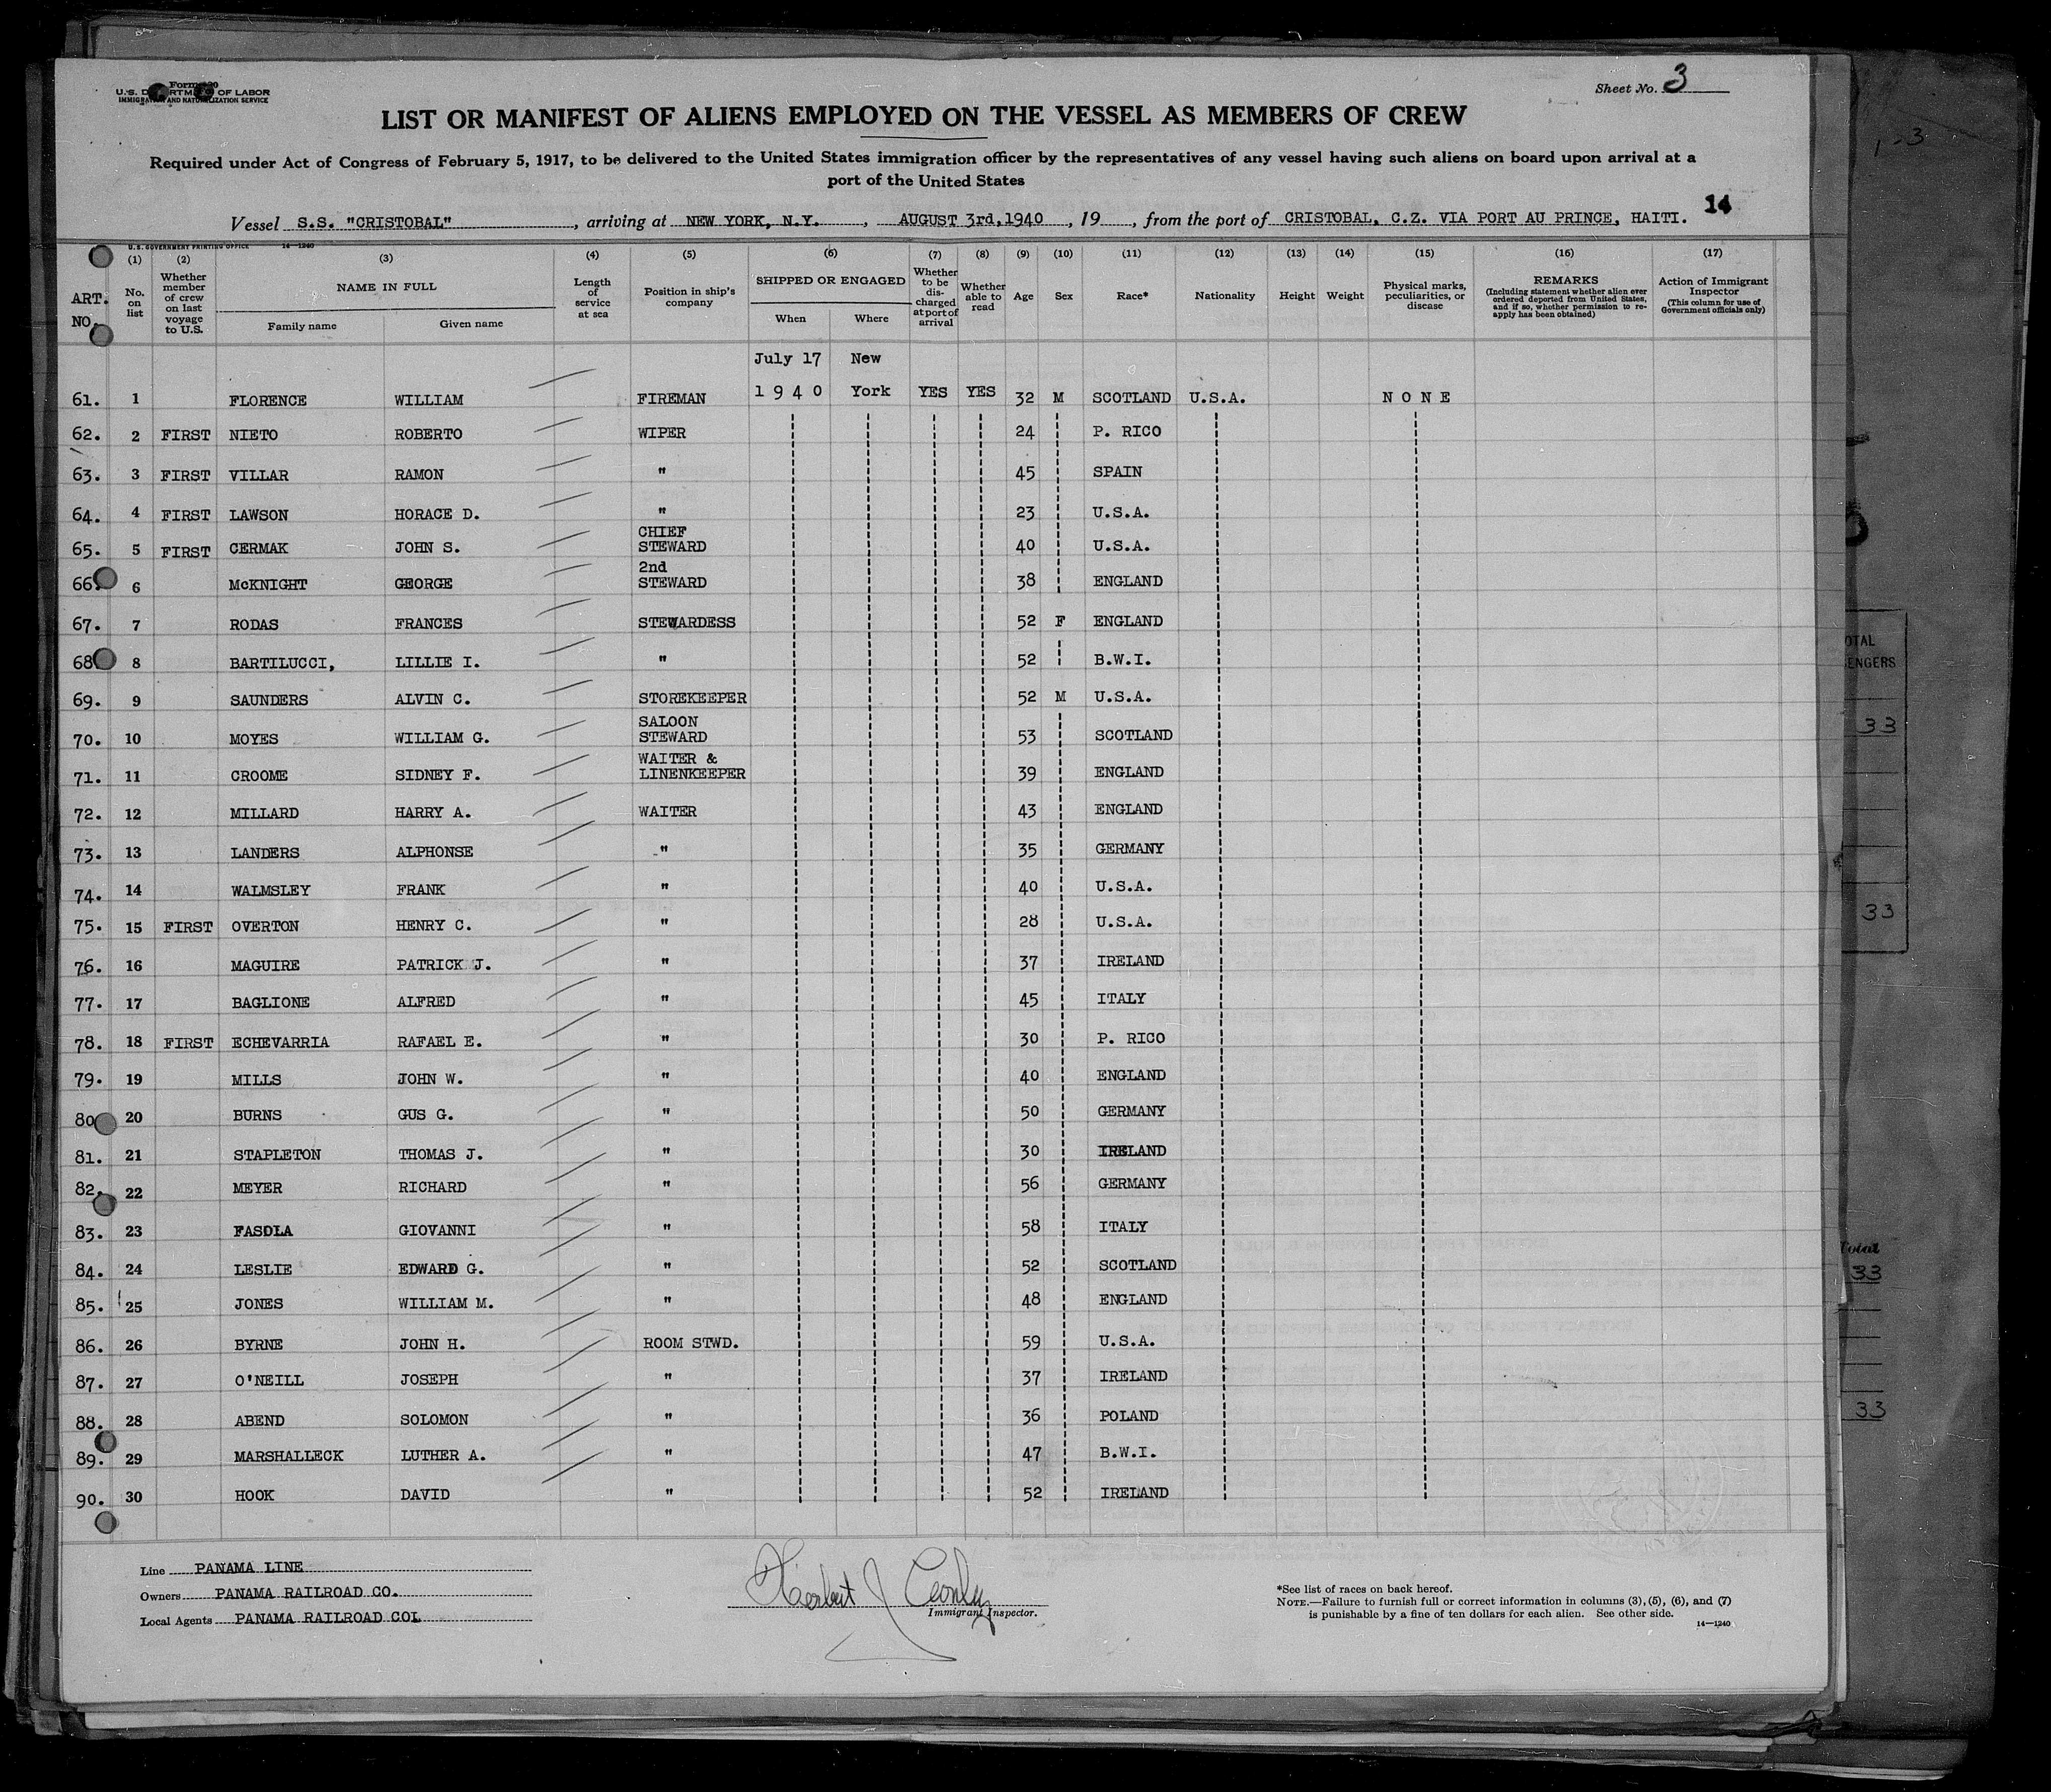 Form
U.S. D RTM OF LABOR
IMMIGRATION AND NATURALIZATION SERVICE
Sheet No. 3
LIST OR MANIFEST OF ALIENS EMPLOYED ON THE VESSEL AS MEMBERS OF CREW
Required under Act of Congress of February 5, 1917, to be delivered to the United States immigration officer by the representatives of any vessel having such aliens on board upon arrival at a
port of the United States
14
Vessel S.S. "CRISTOBAL", arriving at NEW YORK, N.Y., AUGUST 3rd,1940, 19, from the port of CRISTOBAL, C.Z. VIA PORT AU PRINCE, HAITI.
U.S. GOVERNMENT PRINTING OFFICE 14—1240
ART. NO. (1) No. on list (2) Whether member of crew on last voyage to U.S. (3) NAME IN FULL Family name Given name (4) Length of service at sea (5) Position in ship's company (6) SHIPPED OR ENGAGED When Where (7) Whether to be discharged at port of arrival (8) Whether able to read (9) Age (10) Sex (11) Race* (12) Nationality (13) Height (14) Weight (15) Physical marks, peculiarities, or disease (16) REMARKS (Including statement whether alien ever ordered deported from United States, and if so, whether permission to reapply has been obtained) (17) Action of Immigrant Inspector (This column for use of Government officials only)
July 17 New
61. 1 FLORENCE WILLIAM FIREMAN 1940 York YES YES 32 M SCOTLAND U.S.A. NONE
62. 2 FIRST NIETO ROBERTO WIPER 24 P. RICO
63. 3 FIRST VILLAR RAMON " 45 SPAIN
64. 4 FIRST LAWSON HORACE D. " 23 U.S.A.
65. 5 FIRST CERMAK JOHN S. CHIEF STEWARD 40 U.S.A.
66. 6 McKNIGHT GEORGE 2nd STEWARD 38 ENGLAND
67. 7 RODAS FRANCES STEWARDESS 52 F ENGLAND
68 8 BARTILUCCI, LILLIE I. " 52 B.W.I.
69. 9 SAUNDERS ALVIN C. STOREKEEPER 52 M U.S.A.
70. 10 MOYES WILLIAM G. SALOON STEWARD 53 SCOTLAND
71. 11 CROOME SIDNEY F. WAITER & LINENKEEPER 39 ENGLAND
72. 12 MILLARD HARRY A. WAITER 43 ENGLAND
73. 13 LANDERS ALPHONSE " 35 GERMANY
74. 14 WALMSLEY FRANK " 40 U.S.A.
75. 15 FIRST OVERTON HENRY C. " 28 U.S.A.
76. 16 MAGUIRE PATRICK J. " 37 IRELAND
77. 17 BAGLIONE ALFRED " 45 ITALY
78. 18 FIRST ECHEVARRIA RAFAEL E. " 30 P. RICO
79. 19 MILLS JOHN W. " 40 ENGLAND
80 20 BURNS GUS G. " 50 GERMANY
81. 21 STAPLETON THOMAS J. " 30 IRELAND
82. 22 MEYER RICHARD " 56 GERMANY
83. 23 FASOLA GIOVANNI " 58 ITALY
84. 24 LESLIE EDWARD G. " 52 SCOTLAND
85. 25 JONES WILLIAM M. " 48 ENGLAND
86. 26 BYRNE JOHN H. ROOM STWD. 59 U.S.A.
87. 27 O'NEILL JOSEPH " 37 IRELAND
88. 28 ABEND SOLOMON " 36 POLAND
89. 29 MARSHALLECK LUTHER A. " 47 B.W.I.
90. 30 HOOK DAVID " 52 IRELAND
Line PANAMA LINE
Owners PANAMA RAILROAD CO.
Local Agents PANAMA RAILROAD COL
Herbert J
Immigrant Inspector.
*See list of races on back hereof.
NOTE.—Failure to furnish full or correct information in columns (3), (5), (6), and (7)
is punishable by a fine of ten dollars for each alien. See other side.
14—1240
1-3
OTAL
ENGERS
33
33
Total
33
33